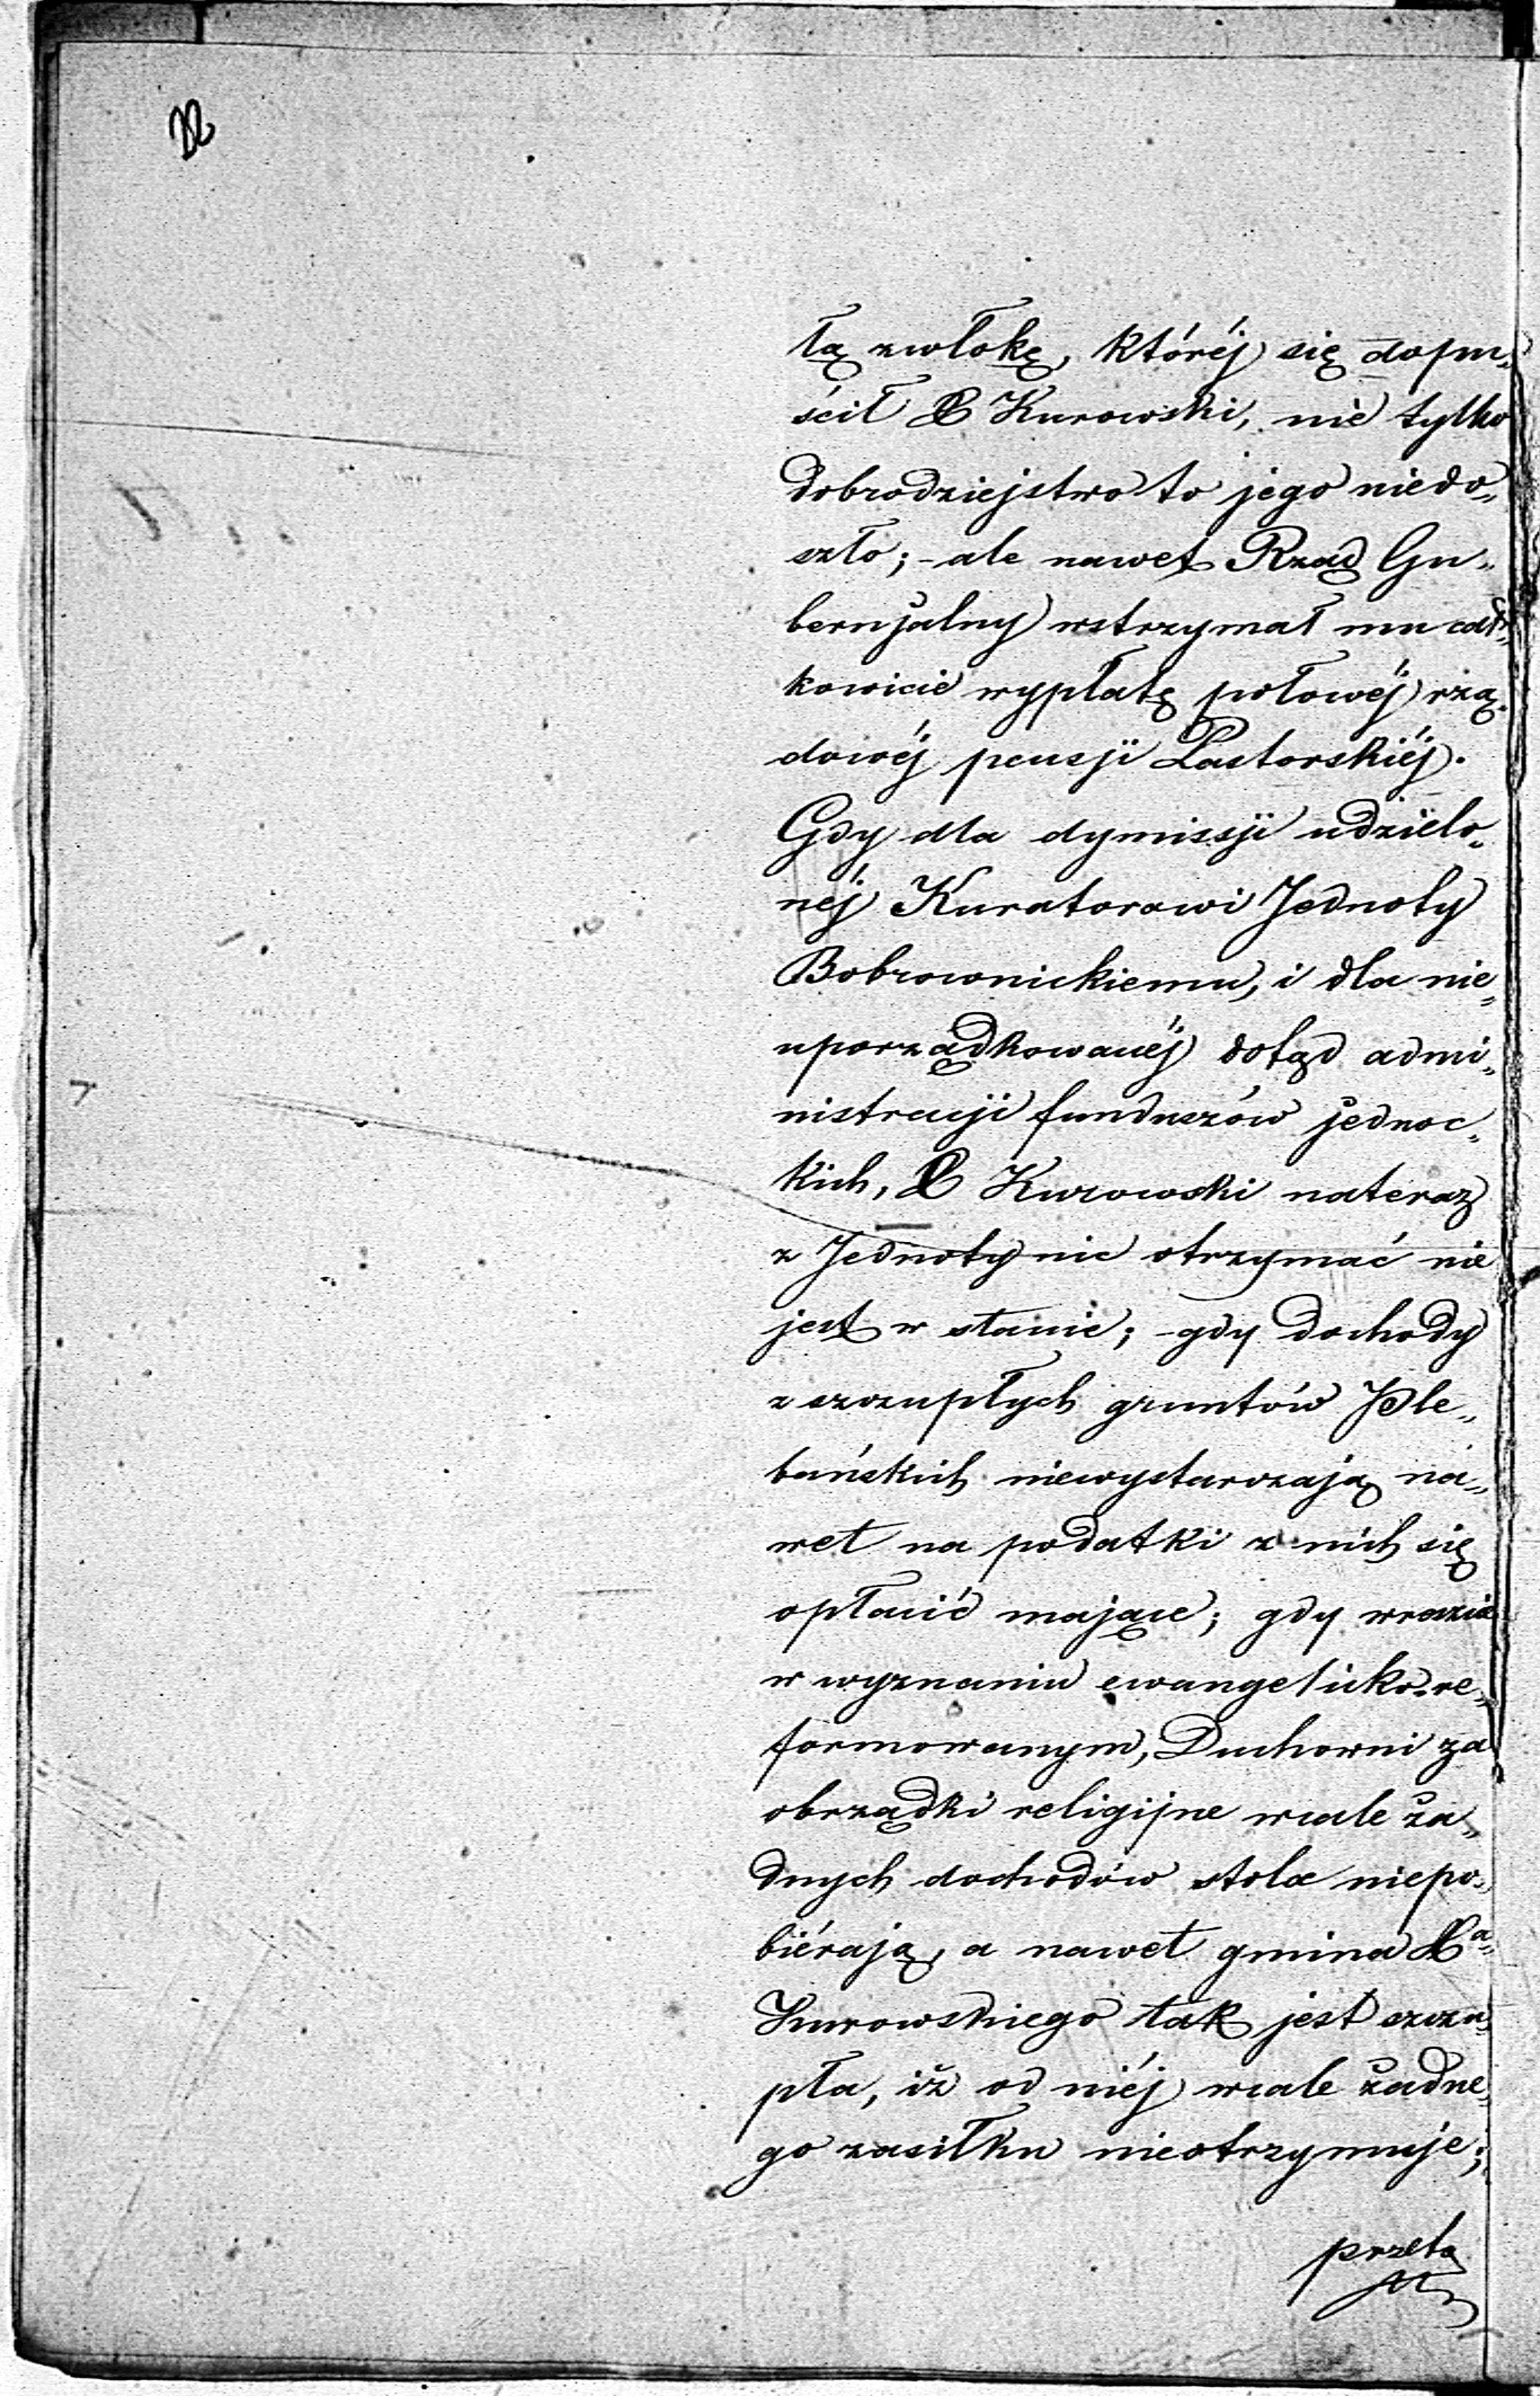 tą zwłokę, któréj się dopu„
ścił X Kurowski, nie tylko
dobrodziejstwo to jego niedo„
szło; - ale nawet Rząd Gu„
bernjalny wstrzymał mu cał„
kowicie wypłatę połowéj rzą„
dowéj pensji Pastorskiéj.
Gdy dla dymissji udzielo„
néj Kuratorowi Jednoty
Bobrownickiemu, i dla nie„
uporządkowanéj dotąd admi„
nistracji funduszów jednoc„
kich, X Kurowski nateraz
z Jednoty nic otrzymać nie
jest w stanie; - gdy dochody
z szczupłych gruntów Ple„
bańskich niewystarczają na„
wet na podatki z nich się
opłacić mające; gdy wrazie
w wyznaniu ewangelicko-re„
formowanym, Duchowni za
obrządki religijne wcale ża„
dnych dochodów stolæ niepo„
biérają, a nawet gmina Xa„
Kurowskiego tak jest szczu„
pła, iż od niéj wcale żadne„
go zasiłku nieotrzymuje;
przeto